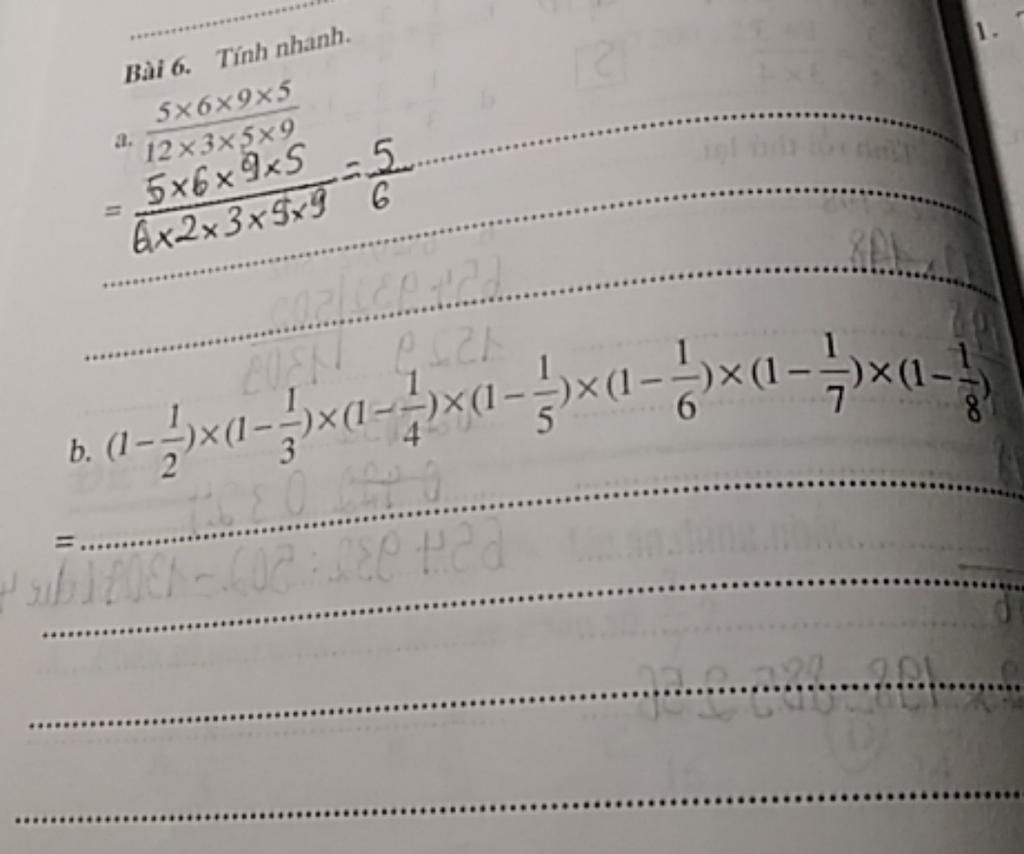 1.
Bài 6. Tính nhanh.
a. \frac{5×6×9×5}{12×3×5×9}
= \frac{5×6×9×5}{6×2×3×5×9} = \frac{5}{6}
b. (1-\frac{1}{2})×(1-\frac{1}{3})×(1-\frac{1}{4})×(1-\frac{1}{5})×(1-\frac{1}{6})×(1-\frac{1}{7})×(1-\frac{1}{8})
=